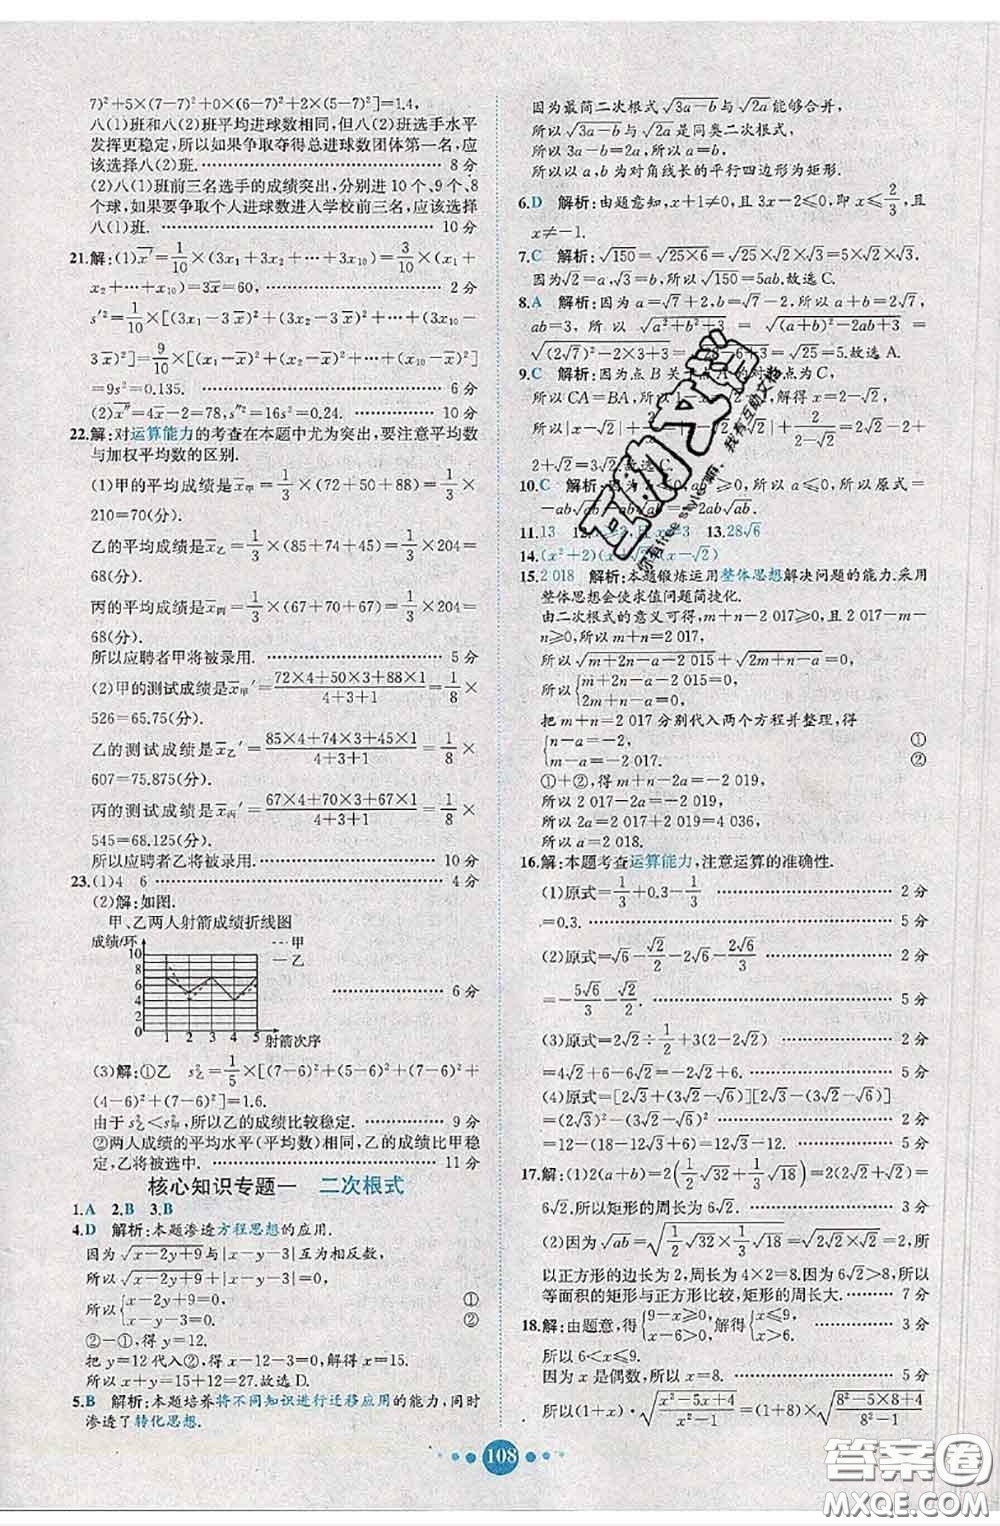 7)²+5×(7−7)²+0×(6−7)²+2×(5−7)²]=1.4,
八(1)班和八(2)班平均进球数相同,但八(2)班选手水平
发挥更稳定,所以如果争取夺得总进球数团体第一名,应
该选择八(2)班. 8分
(2)八(1)班前三名选手的成绩突出,分别进10个、9个、8
个球,如果要争取个人进球数进入学校前三名,应该选择
八(1)班. 10分
21.解:(1)x̄′=1/10×(3x₁+3x₂+…+3x₁₀)=3/10×(x₁+
x₂+…+x₁₀)=3x̄=60, 2分
s′²=1/10×[(3x₁−3x̄)²+(3x₂−3x̄)²+…+(3x₁₀−
3x̄)²]=9/10×[(x₁−x̄)²+(x₂−x̄)²+…+(x₁₀−x̄)²]
=9s²=0.135. 6分
(2)x̄″=4x̄−2=78,s″²=16s²=0.24. 10分
22.解:对运算能力的考查在本题中尤为突出,要注意平均数
与加权平均数的区别.
(1)甲的平均成绩是x̄甲=1/3×(72+50+88)=1/3×
210=70(分).
乙的平均成绩是x̄乙=1/3×(85+74+45)=1/3×204=
68(分).
丙的平均成绩是x̄丙=1/3×(67+70+67)=1/3×204=
68(分).
所以应聘者甲将被录用. 5分
(2)甲的测试成绩是x̄甲′=(72×4+50×3+88×1)/(4+3+1)=1/8×
526=65.75(分).
乙的测试成绩是x̄乙′=(85×4+74×3+45×1)/(4+3+1)=1/8×
607=75.875(分).
丙的测试成绩是x̄丙′=(67×4+70×3+67×1)/(4+3+1)=1/8×
545=68.125(分).
所以应聘者乙将被录用. 10分
23.(1)4 6 4分
(2)解:如图.
甲、乙两人射箭成绩折线图
成绩/环
甲
乙
10
8
6
4
2
0
1 2 3 4 5 射箭次序
6分
(3)解:①乙 s²乙=1/5×[(7−6)²+(5−6)²+(7−6)²+
(4−6)²+(7−6)²]=1.6.
由于s²乙<s²甲,所以乙的成绩比较稳定. 9分
②两人成绩的平均水平(平均数)相同,乙的成绩比甲稳
定,乙将被选中. 11分
核心知识专题一 二次根式
1.A 2.B 3.B
4.D 解析:本题渗透方程思想的应用.
因为√(x−2y+9)与|x−y−3|互为相反数,
所以√(x−2y+9)+|x−y−3|=0,
所以{x−2y+9=0, ①
x−y−3=0. ②
②−①,得y=12.
把y=12代入②,得x−12−3=0,解得x=15.
所以x+y=15+12=27.故选D.
5.B 解析:本题培养将不同知识进行迁移应用的能力,同时
渗透了转化思想.
因为最简二次根式√(3a−b)与√(2a)能够合并,
所以√(3a−b)与√(2a)是同类二次根式.
所以3a−b=2a,所以a=b,
所以以a,b为对角线长的平行四边形为矩形.
6.D 解析:由题意知,x+1≠0,且3x−2⩽0,即x⩽2/3,且
x≠−1.
7.C 解析:√150=√(25×6)=√25×√2×√3=5√2×√3.
因为√2=a,√3=b,所以√150=5ab.故选C.
8.A 解析:因为a=√7+2,b=√7−2,所以a+b=2√7,
ab=3,所以√(a²+b²+3)=√((a+b)²−2ab+3)=
√((2√7)²−2×3+3)=√25=5.故选A.
9.C 解析:因为点B关于点A的对称点为C,
所以CA=BA,所以1−x=√2−1,解得x=2−√2,
所以|x−√2|+2/x=|2−√2−√2|+2/(2−√2)=2√2−2+
2+√2=3√2.故选C.
10.C
11.13 13.28√6
14.(x²+2)(x+√2)(x−√2)
15.2 018 解析:本题锻炼运用整体思想解决问题的能力.采用
整体思想会使求值问题简捷化.
由二次根式的意义可得,m+n−2 017⩾0,2 017−m−
n⩾0,所以m+n=2 017,
所以√(m+2n−a−2 015)+√(2m+n−a)=0,
所以{m+2n−a−2 015=0,
2m+n−a=0.
把m+n=2 017分别代入两个方程并整理,得
{n−a=−2, ①
m−a=−2 017. ②
①+②,得m+n−2a=−2 019,
所以2 017−2a=−2 019,
所以2a=2 017+2 019=4 036,
所以a=2 018.
16.解:本题考查运算能力,注意运算的准确性.
(1)原式=1/3+0.3−1/3 2分
=0.3. 5分
(2)原式=√6−√2/2−2√6−2√6/3 2分
=−5√6/3−√2/2. 5分
(3)原式=2√2÷1/2+3−2(√2) 2分
=4√2+6−6√2=−2√2+6. 5分
(4)原式=[2√3+(3√2+√6)][2√3−(3√2+√6)]
=(2√3)²−(3√2+√6)² 2分
=12−(18+12√3+6)=−12√3−12. 5分
17.解:(1)2(a+b)=2(1/2√32+1/3√18)=2(2√2+√2)=
6√2,所以矩形的周长为6√2. 3分
(2)因为√ab=√(1/2√32×1/3√18)=√(2√2×√2)=2,所
以正方形的边长为2,周长为4×2=8.因为6√2>8,所以
等面积的矩形与正方形比较,矩形的周长大. 7分
18.解:由题意,得{9−x⩾0,x−6>0,解得{x⩽9,x>6. 3分
所以6<x⩽9.
因为x是偶数,所以x=8. 5分
所以(1+x)·√((x²−5x+4)/(x²−1))=(1+8)√((8²−5×8+4)/(8²−1))
108
答案圈
MXQE.COM